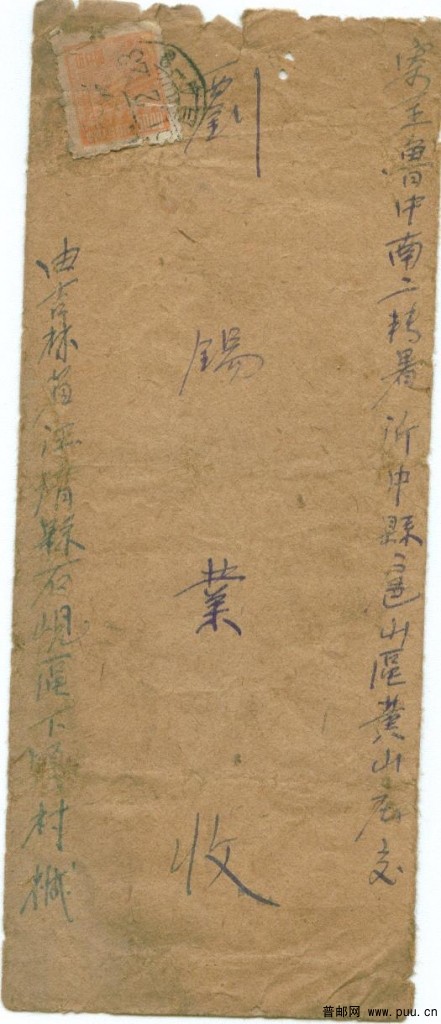 寄至魯中南二專署沂中縣邑山區黄山庄交
劉錫業收
由吉林省汪清縣石峴區下村緘
普邮网 www.puu.cn